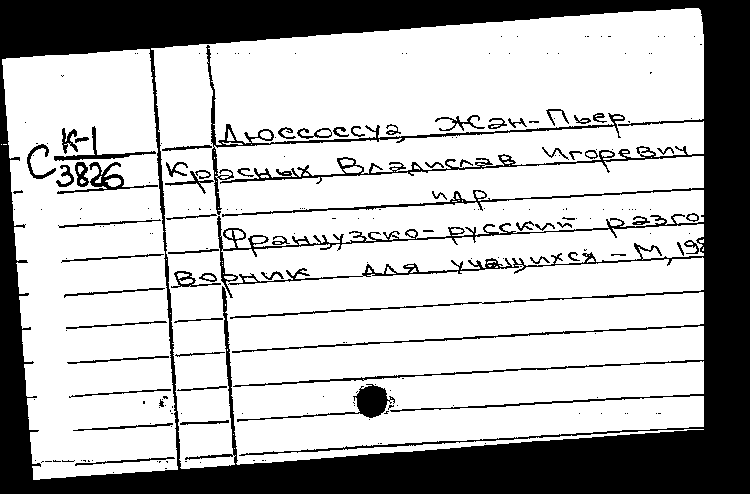 К-1
С 3826
Дюссоссуа, Жан-Пьер
Красных, Владислав Игоревич
и др.
Французско-русский разго-
ворник для учащихся. - М, 198